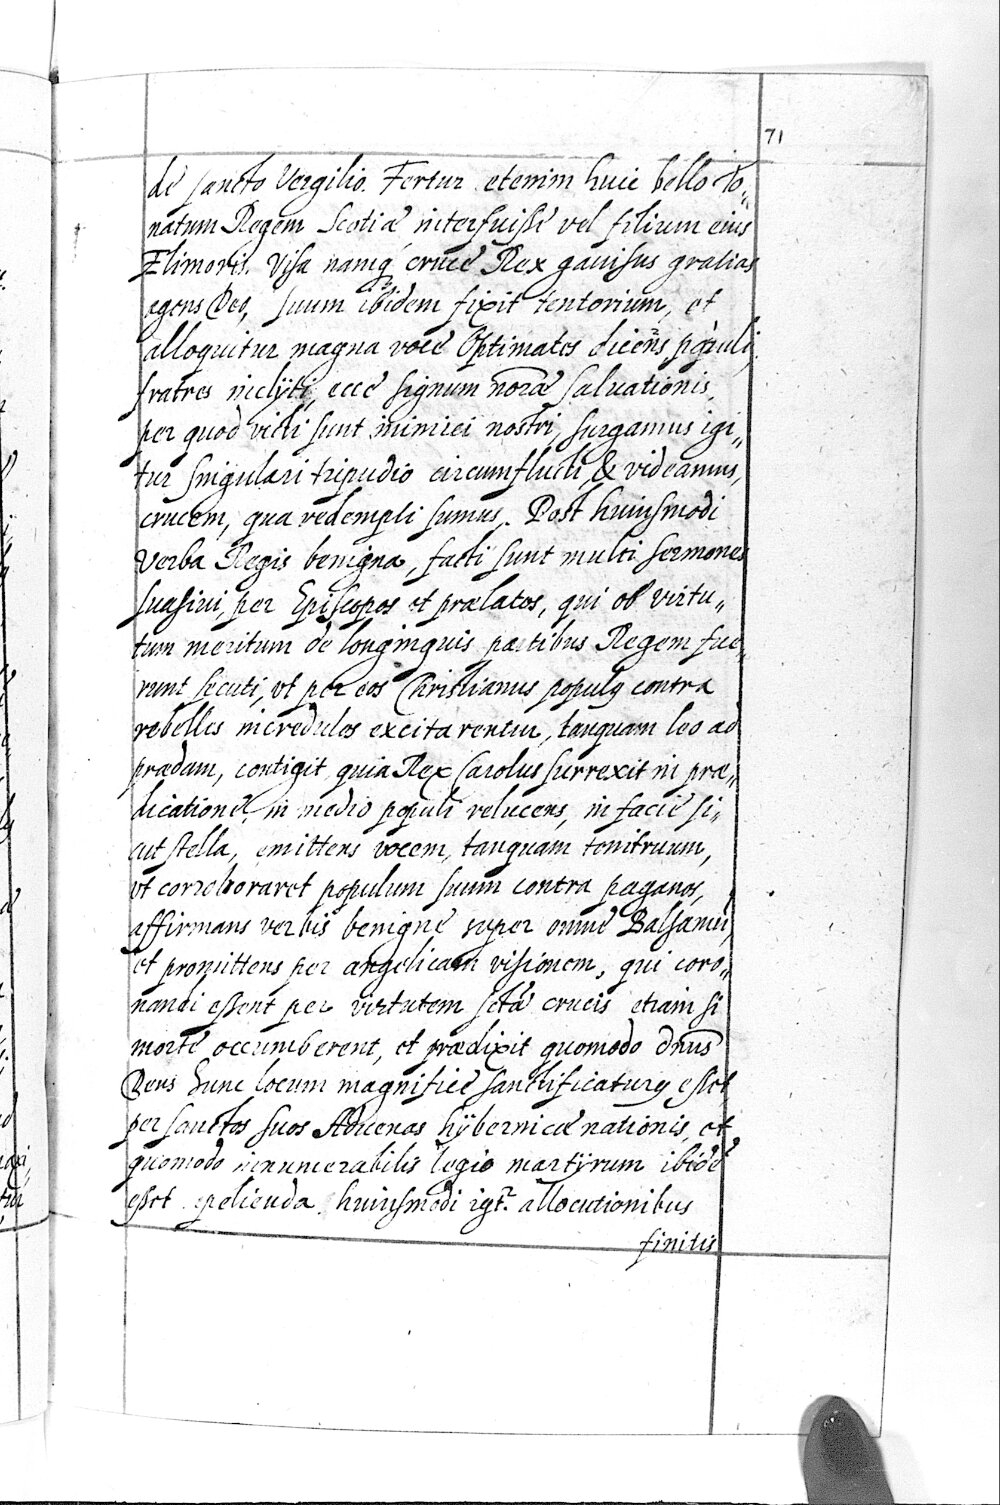 71
de sancto Vergilio. Fertur etenim huic bello Do„
natum Regem Scotiæ interfuisse vel filium eius
Elimoris. Visa namq́ cruce Rex gauisus gratias
agens Deo, suum ibidem fixit tentorium, et
alloquitur magna voce Optimates dicens
fratres inclÿti, ecce signum nr̃æ saluationis,
per quod victi sunt inimici nostri, surgamus igi„
tur singulari tripudio circumfluch, & videamus,
crucem, qua redempti sumus. Post huiusmodi
verba Regis benigna, facti sunt multi sermones
suasiui, per Episcopos et prælatos, qui ob virtu„
tum meritum de longinquis partibus Regem fue„
runt secuti, vt per eos Christianus populꝰ contra
rebelles incredulos excitarentur, tanquam leo ad
prædam, contigit quia Rex Carolus surrexit in præ„
dicatione, in medio populi relucens, in facie si„
cut stella, emittens vocem, tanquam tonitruum,
vt corroboraret populum suum contra paganos,
affirmans verbis benigne super omne Balsamũ,
et promittens per angelicam visionem, qui coro„
nandi essent per virtutem sctæ crucis etiam si
morte occumberent, et prædixit quomodo dñus
Deus hunc locum magnifice sanctificaturꝰ esset
per sanctos suos Aduenas hÿbernicæ nationis, et
quomodo innumerabilis legio martÿrum ibidẽ
esset sepelienda. huiusmodi igr̃. allocutionibus
finitis